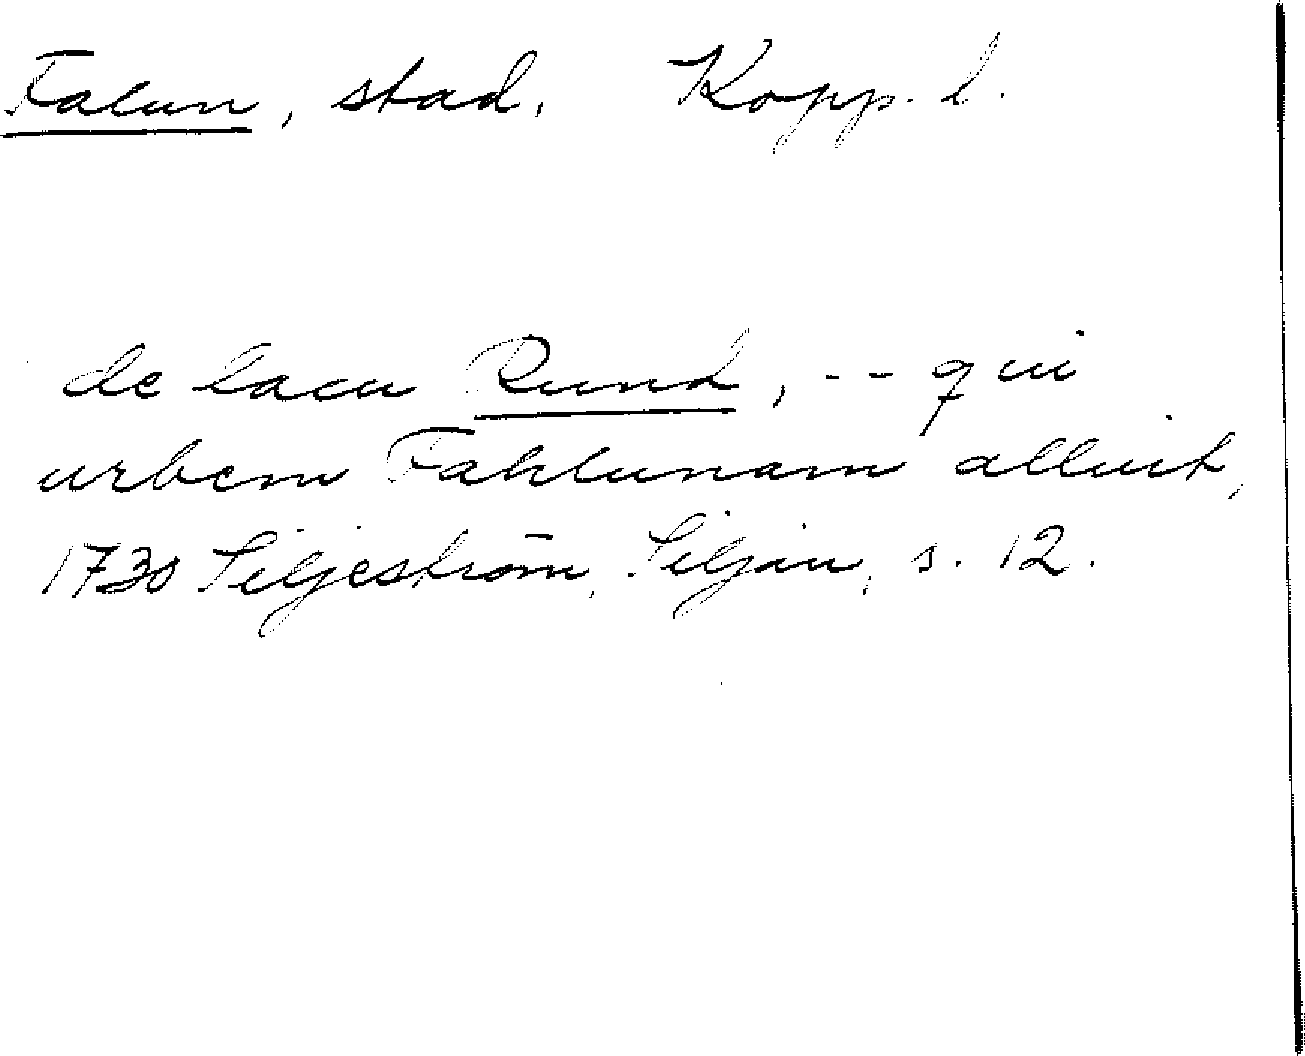 Falun, stad. Kopp. l.
de lacu Rund, -- qui
urbem Fahlunam alluit,
1730 Siljeström, Siljan, s. 12.